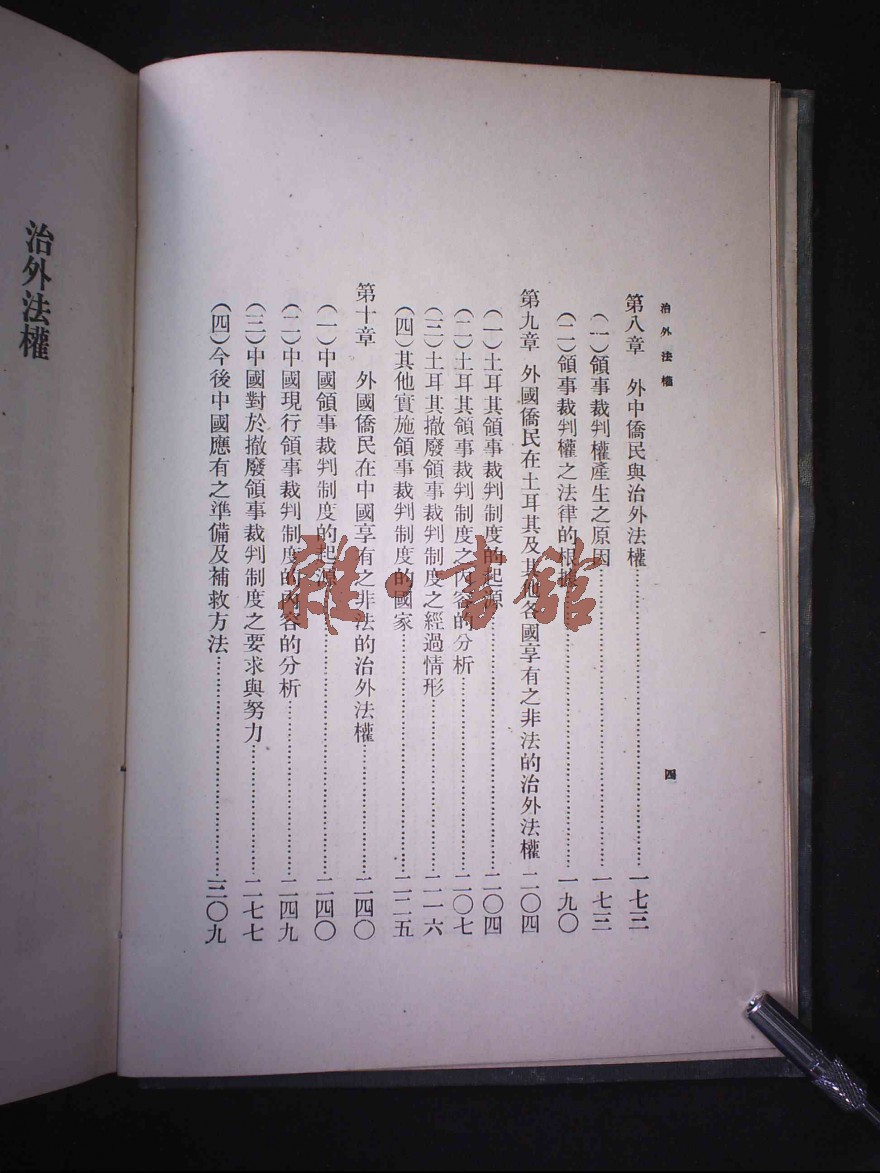 治外法權
四
第八章　外中僑民與治外法權……一七三
（一）領事裁判權產生之原因……一七三
（二）領事裁判權之法律的根據……一九〇
第九章　外國僑民在土耳其及其他各國享有之非法的治外法權　二〇四
（一）土耳其領事裁判制度的起源……二〇四
（二）土耳其領事裁判制度之內容的分析……二〇七
（三）土耳其撤廢領事裁判制度之經過情形……二一六
（四）其他實施領事裁判制度的國家……二二五
第十章　外國僑民在中國享有之非法的治外法權……二四〇
（一）中國領事裁判制度的起源……二四〇
（二）中國現行領事裁判制度的內容的分析……二四九
（三）中國對於撤廢領事裁判制度之要求與努力……二七七
（四）今後中國應有之準備及補救方法……三〇九
治外法權
雜·書館